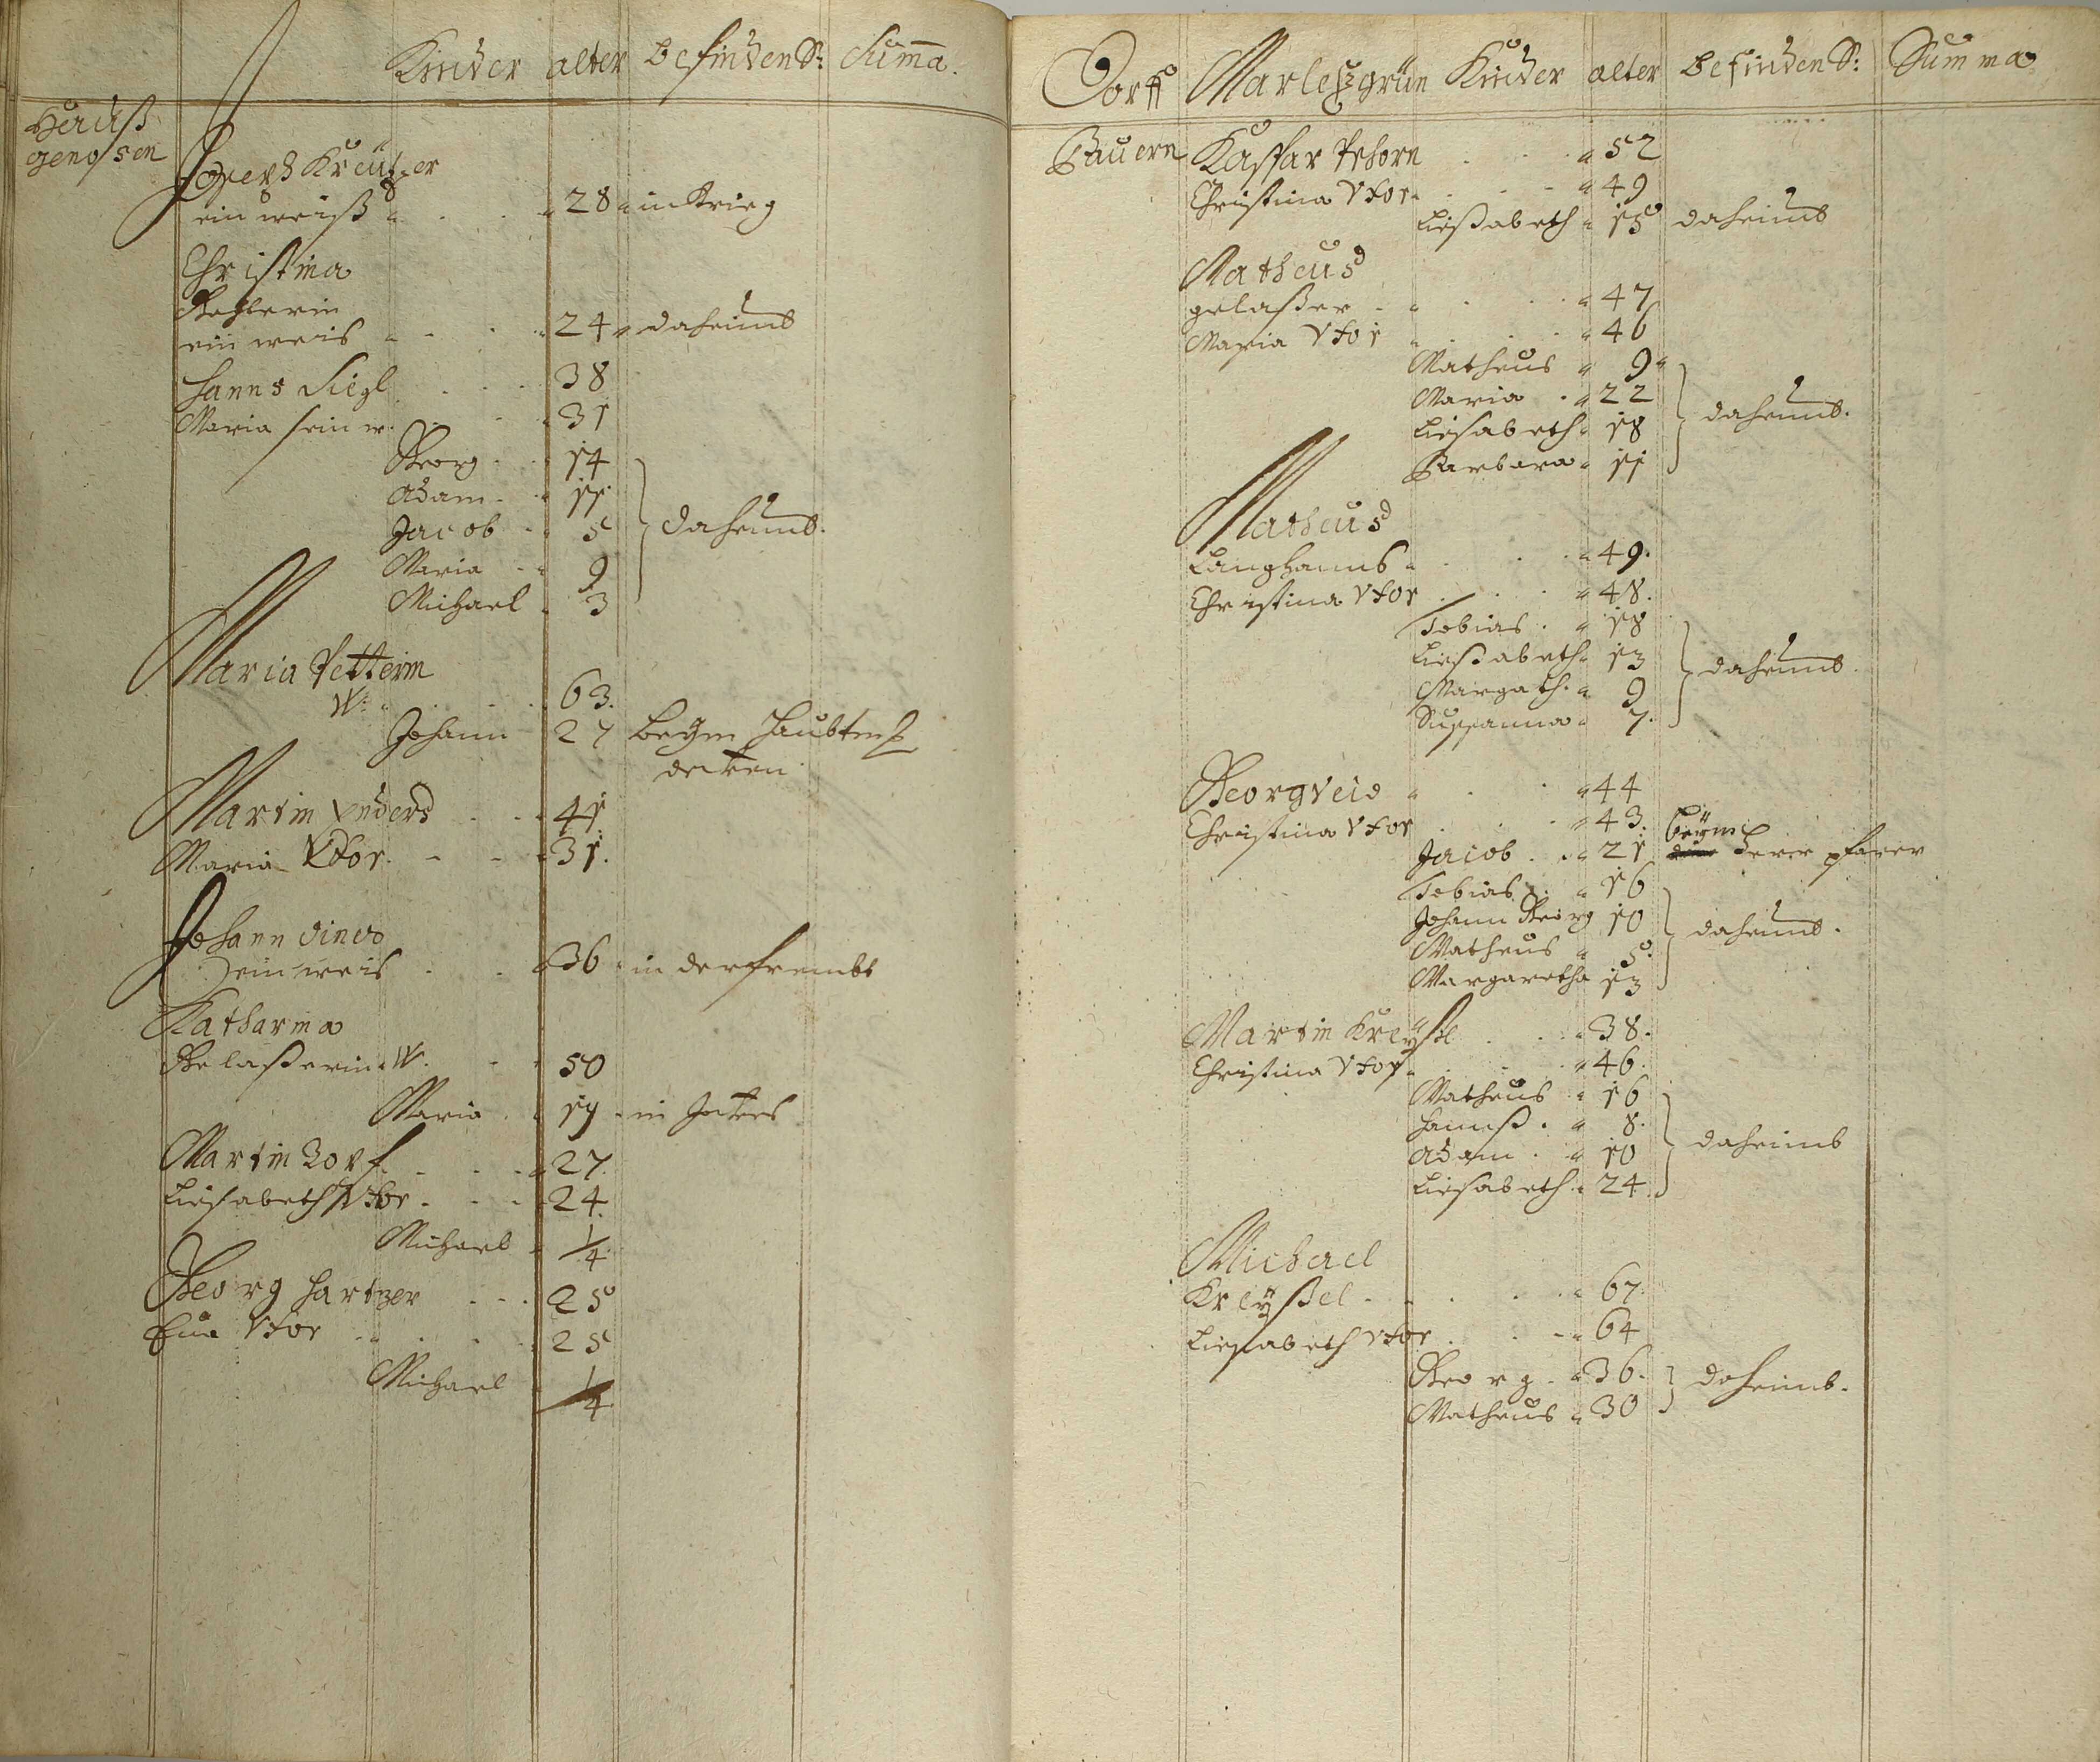 Kinder alter befinden S: Summa.
Hauß
genossen
Kreützer
ein weiß 28 in Krieg
Christina

ein weis 24 daheimb
Hanns Siegl 38
Maria sein w. 31
Georg 14
Adam 11
Jacob 5
Maria 9
Michael 3
daheimb.
Maria Petterin
W: 63.
Johann 27 beym Haubten

Martin Enders 41
Maria Vxor. 31.
Johann
ein weis 36 in der frembt
Katharina
Gelaßerin W. 50
Maria 17 in
Martin Zopf 27.
Liesabeth Vxor 24.
Michael 1/4
Georg Hartzer 25
Eua Vxor 25
Michael 1/4
Dorff Marleßgrün Kinder alter befinden S: Summa
Bauern Kaspar 52
Christina Vxor. 49
Ließabeth 15 daheimb
Matheus
gelaßer 47
Maria Vxor 46
Matheus 9
Maria 22
Liesabeth 18
Barbara 11
daheimb.
Matheus
Langhanns 49.
Christina Vxor 48.
Tobias 18
Ließabeth 13
Margath. 9
Sussanna 7.
daheimb.
Georg Veid 44
Christina Vxor 43.
beym
Jacob 21 Herr pfarer
Tobias 16
Johann Georg 10
Matheus 5
Margaretha 13
daheimb.
Martin Kreyßl 38.
Christina Vxor 46.
Matheus 16
Hannß 8.
Adam 10
Liesabeth 24.
daheimb
Michael
Kreyßel 67.
Liesabeth Vxor 64
Georg 36.
Matheus 30
daheimb.